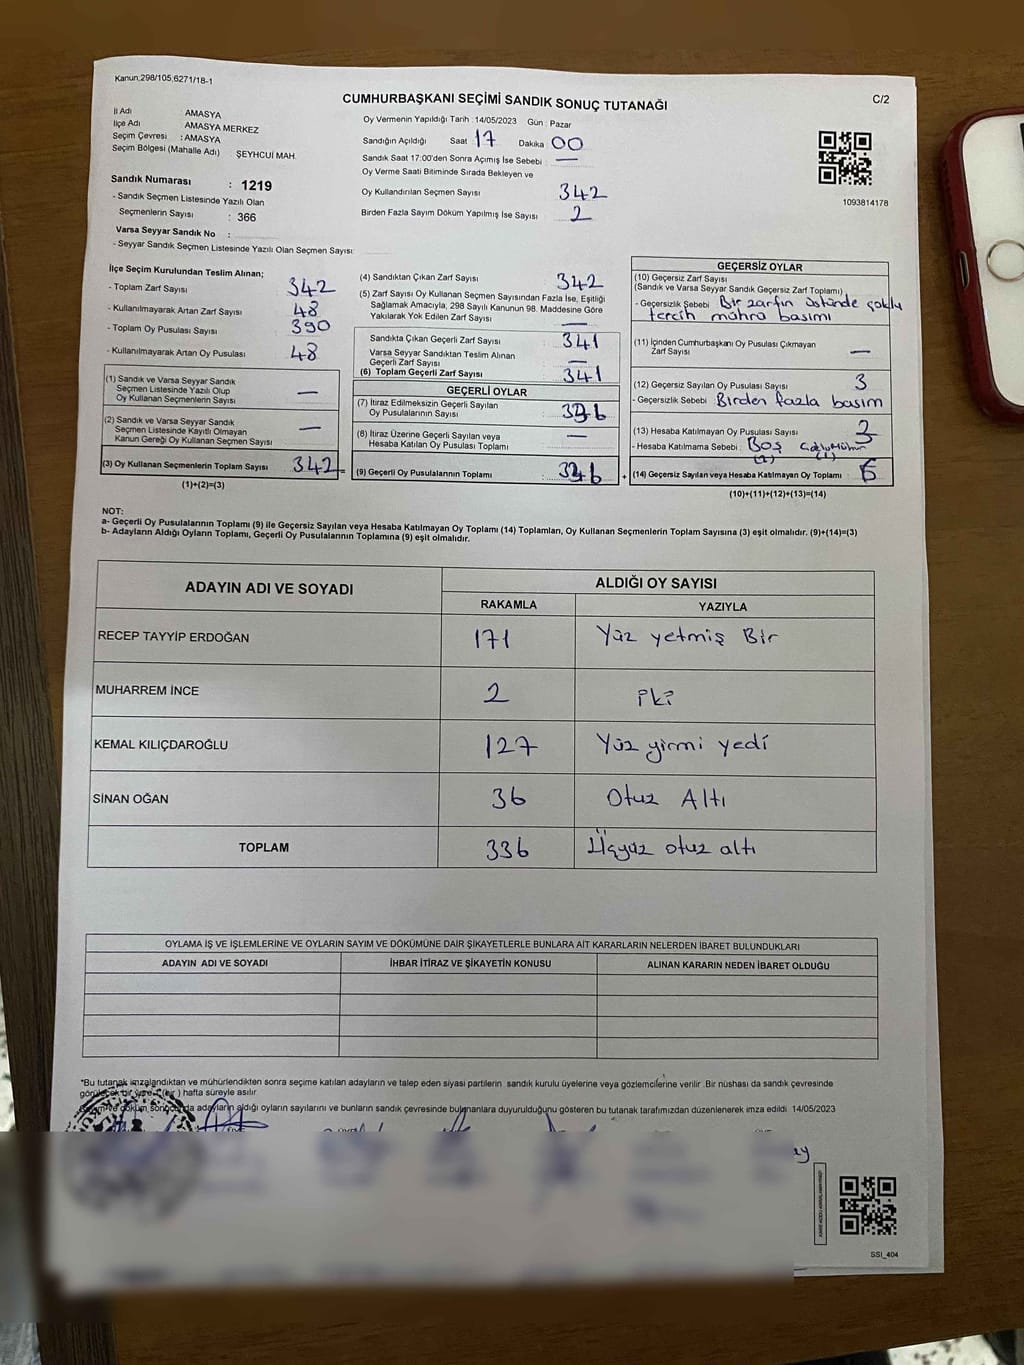 Kanun,298/105,6271/18-1
C/2
CUMHURBAŞKANI SEÇİMİ SANDIK SONUÇ TUTANAĞI
İl Adı AMASYA
İlçe Adı AMASYA MERKEZ
Seçim Çevresi : AMASYA
Seçim Bölgesi (Mahalle Adı) ŞEYHCUİ MAH.
Sandık Numarası : 1219
- Sandık Seçmen Listesinde Yazılı Olan
Seçmenlerin Sayısı : 366
Varsa Seyyar Sandık No :
- Seyyar Sandık Seçmen Listesinde Yazılı Olan Seçmen Sayısı:
Oy Vermenin Yapıldığı Tarih : 14/05/2023 Gün : Pazar
Sandığın Açıldığı Saat 17 Dakika 00
Sandık Saat 17:00'den Sonra Açımış İse Sebebi : —
Oy Verme Saati Bitiminde Sırada Bekleyen ve
Oy Kullandırılan Seçmen Sayısı 342
Birden Fazla Sayım Döküm Yapılmış İse Sayısı 2
1093814178
İlçe Seçim Kurulundan Teslim Alınan;
- Toplam Zarf Sayısı 342
- Kullanılmayarak Artan Zarf Sayısı 48
- Toplam Oy Pusulası Sayısı 390
- Kullanılmayarak Artan Oy Pusulası 48
(1) Sandık ve Varsa Seyyar Sandık
Seçmen Listesinde Yazılı Olup
Oy Kullanan Seçmenlerin Sayısı —
(2) Sandık ve Varsa Seyyar Sandık
Seçmen Listesinde Kayıtlı Olmayan
Kanun Gereği Oy Kullanan Seçmen Sayısı —
(3) Oy Kullanan Seçmenlerin Toplam Sayısı 342
(1)+(2)=(3)
(4) Sandıktan Çıkan Zarf Sayısı 342
(5) Zarf Sayısı Oy Kullanan Seçmen Sayısından Fazla İse, Eşitliği
Sağlamak Amacıyla, 298 Sayılı Kanunun 98. Maddesine Göre
Yakılarak Yok Edilen Zarf Sayısı —
Sandıkta Çıkan Geçerli Zarf Sayısı : 341
Varsa Seyyar Sandıktan Teslim Alınan
Geçerli Zarf Sayısı —
(6) Toplam Geçerli Zarf Sayısı : 341
GEÇERLİ OYLAR
(7) İtiraz Edilmeksizin Geçerli Sayılan
Oy Pusulalarının Sayısı : 336
(8) İtiraz Üzerine Geçerli Sayılan veya
Hesaba Katılan Oy Pusulası Toplamı —
(9) Geçerli Oy Pusulalarının Toplamı 336
GEÇERSİZ OYLAR
(10) Geçersiz Zarf Sayısı
(Sandık ve Varsa Seyyar Sandık Geçersiz Zarf Toplamı)
- Geçersizlik Şebebi Bir zarfın üstünde çoklu
tercih mührü basımı
(11) İçinden Cumhurbaşkanı Oy Pusulası Çıkmayan
Zarf Sayısı —
(12) Geçersiz Sayılan Oy Pusulası Sayısı 3
- Geçersizlik Sebebi Birden fazla basım
(13) Hesaba Katılmayan Oy Pusulası Sayısı 3
- Hesaba Katılmama Sebebi : Boş
(2) (1)
+ (14) Geçersiz Sayılan veya Hesaba Katılmayan Oy Toplamı : 6
(10)+(11)+(12)+(13)=(14)
NOT:
a- Geçerli Oy Pusulalarının Toplamı (9) ile Geçersiz Sayılan veya Hesaba Katılmayan Oy Toplamı (14) Toplamları, Oy Kullanan Seçmenlerin Toplam Sayısına (3) eşit olmalıdır. (9)+(14)=(3)
b- Adayların Aldığı Oyların Toplamı, Geçerli Oy Pusulalarının Toplamına (9) eşit olmalıdır.
ADAYIN ADI VE SOYADI ALDIĞI OY SAYISI
RAKAMLA YAZIYLA
RECEP TAYYİP ERDOĞAN 171 Yüz yetmiş Bir
MUHARREM İNCE 2 iki
KEMAL KILIÇDAROĞLU 127 Yüz yirmi yedi
SİNAN OĞAN 36 Otuz Altı
TOPLAM 336 Üçyüz otuz altı
OYLAMA İŞ VE İŞLEMLERİNE VE OYLARIN SAYIM VE DÖKÜMÜNE DAİR ŞİKAYETLERLE BUNLARA AİT KARARLARIN NELERDEN İBARET BULUNDUKLARI
ADAYIN ADI VE SOYADI İHBAR İTİRAZ VE ŞİKAYETİN KONUSU ALINAN KARARIN NEDEN İBARET OLDUĞU
*Bu tutanak imzalandıktan ve mühürlendikten sonra seçime katılan adayların ve talep eden siyasi partilerin sandık kurulu üyelerine veya gözlemcilerine verilir .Bir nüshası da sandık çevresinde
hafta süreyle asılır
adayların aldığı oyların sayılarını ve bunların sandık çevresinde bulunanlara duyurulduğunu gösteren bu tutanak tarafımızdan düzenlenerek imza edildi 14/05/2023
SSI_404